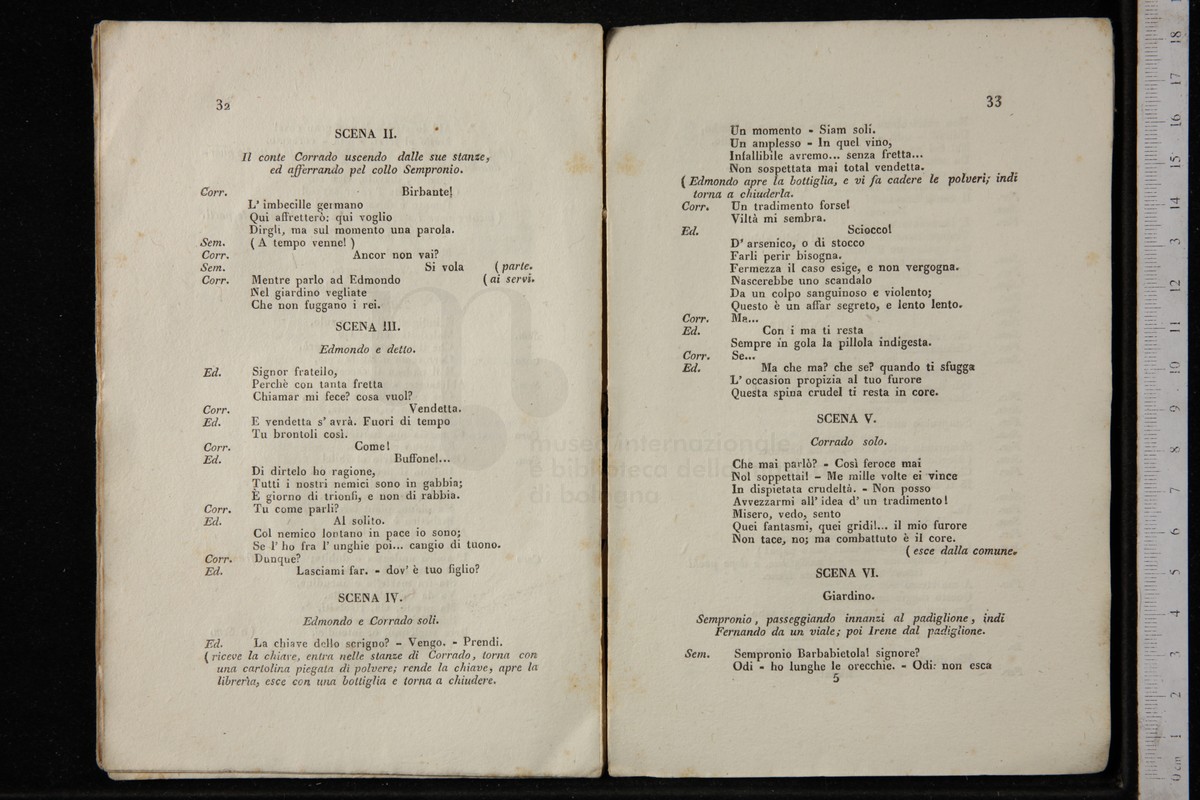 32
SCENA II.
Il conte Corrado uscendo dalle sue stanze,
ed afferrando pel collo Sempronio.
Corr. Birbante!
L' imbecille germano
Qui affretterò: qui voglio
Dirgli, ma sul momento una parola.
Sem. ( A tempo venne! )
Corr. Ancor non vai?
Sem. Si vola ( parte.
Corr. Mentre parlo ad Edmondo ( ai servi.
Nel giardino vegliate
Che non fuggano i rei.
SCENA III.
Edmondo e detto.
Ed. Signor fratello,
Perchè con tanta fretta
Chiamar mi fece? cosa vuol?
Corr. Vendetta.
Ed. E vendetta s' avrà. Fuori di tempo
Tu brontoli così.
Corr. Come!
Ed. Buffone!...
Di dirtelo ho ragione,
Tutti i nostri nemici sono in gabbia;
È giorno di trionfi, e non di rabbia.
Corr. Tu come parli?
Ed. Al solito.
Col nemico lontano in pace io sono;
Se l' ho fra l' unghie poi... cangio di tuono.
Corr. Dunque?
Ed. Lasciami far. - dov' è tuo figlio?
SCENA IV.
Edmondo e Corrado soli.
Ed. La chiave dello scrigno? - Vengo. - Prendi.
( riceve la chiave, entra nelle stanze di Corrado, torna con
una cartolina piegata di polvere; rende la chiave, apre la
libreria, esce con una bottiglia e torna a chiudere.
33
Un momento - Siam soli.
Un amplesso - In quel vino,
Infallibile avremo... senza fretta...
Non sospettata mai total vendetta.
( Edmondo apre la bottiglia, e vi fa cadere le polveri; indi
torna a chiuderla.
Corr. Un tradimento forse!
Viltà mi sembra.
Ed. Sciocco!
D' arsenico, o di stocco
Farli perir bisogna.
Fermezza il caso esige, e non vergogna.
Nascerebbe uno scandalo
Da un colpo sanguinoso e violento;
Questo è un affar segreto, e lento lento.
Corr. Ma...
Ed. Con i ma ti resta
Sempre in gola la pillola indigesta.
Corr. Se...
Ed. Ma che ma? che se? quando ti sfugga
L' occasion propizia al tuo furore
Questa spina crudel ti resta in core.
SCENA V.
Corrado solo.
Che mai parlò? - Così feroce mai
Nol soppettai! - Me mille volte ei vince
In dispietata crudeltà. - Non posso
Avvezzarmi all' idea d' un tradimento!
Misero, vedo, sento
Quei fantasmi, quei gridi!... il mio furore
Non tace, no; ma combattuto è il core.
( esce dalla comune.
SCENA VI.
Giardino.
Sempronio, passeggiando innanzi al padiglione, indi
Fernando da un viale; poi Irene dal padiglione.
Sem. Sempronio Barbabietola! signore?
Odi - ho lunghe le orecchie. - Odi: non esca
5
museo internazionale
e biblioteca della
di bologna
0 cm 1 2 3 4 5 6 7 8 9 10 11 12 13 14 15 16 17 18